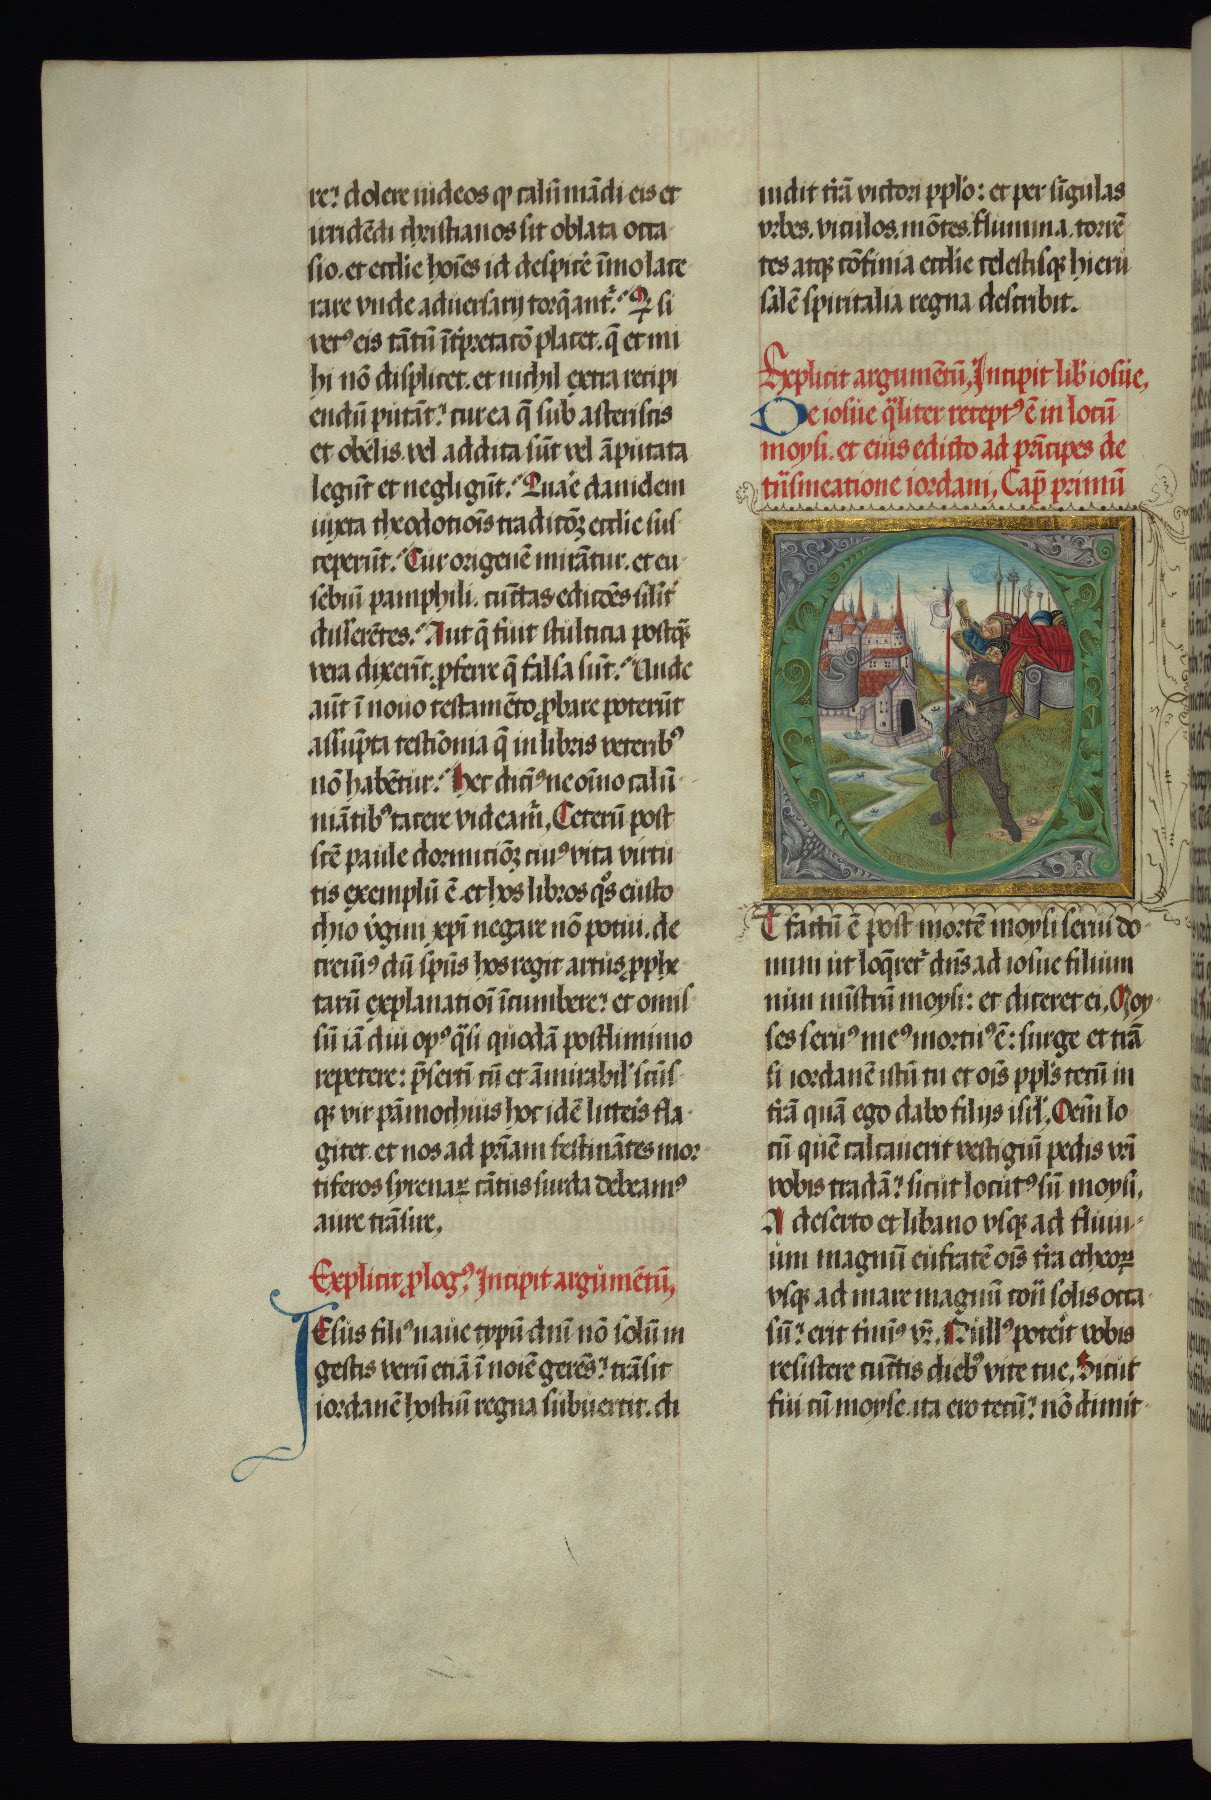 re? dolere iudeos ꝙ calūmādi eis et
irridēdi christianos sit oblata occa
sio. et ecclie hoīes id despice īmo lace
rare vnde adversarij torqāntr̄. Qr si
vetꝰ eis tātū ītp̄retatō placet. q̄ et mi
hi nō displicet. et nichil extra recipi
endū putāt? cur ea q̄ sub asteriscis
et obelis. vel addita sūt vel āputata
legūt et negligūt. Quare danidem
iuxta theodotiōis traditōꝫ ecclie sus
ceperūt. Cur origenē mirātur. et eu
sebiū pamphili. cūctas edicōes silit̄
disserētes. Aut q̄ fuit stulticia postqꝫ
vera dixerīt. ꝓferre q̄ falsa sūt. Unde
aūt ī nouo testamēto ꝓbare poterūt
assūpta testīonia q̄ in libris veteribꝰ
nō habētur. Hec dicīꝰ ne oīno calū
niātibꝰ tacere videamr̄, Ceterū post
scē paule dormitiōꝫ cuiꝰ vita virtu
tis exemplū ē. et hos libros qͦs eusto
chio v̄gini xp̄i negare nō potui. de
creuīꝰ dū spūs hos regit artus ꝓphe
tarū explanatioī īcumbere? et omis
sū iā diu opꝰ q̄si quodā postliminio
repetere: p̄sertī cū et āmirabil̕ scūs
qꝫ vir pāmochius hoc idē litteris fla
gitet. et nos ad pr̄iam festinātes mor
tiferos syrenaꝝ cātus surda debeamꝰ
aure trāsire,
Explicit ꝓlogꝰ, Incipit argumētū,
Iesus filiꝰ naue typū dn̄i nō solū in
gestis verū etiā ī noīe gerēs? trāsit
iordanē hostiū regna subuertit. di
uidit t̄rā victori ppl̄o: et per sīgulas
vrbes. viculos. mōtes. flumina. torrē
tes atqꝫ cōfinia ecclie celestisqꝫ hieru
salē spiritalia regna describit.
Explicit argumētū, Incipit lib̄ iosue,
De iosue q̄liter receptꝰ ē in locū
moysi. et eius edicto ad prīcipes de
trāsmeatione iordani, Cap̄ primū
Et factū ē post mortē moysi serui do
mini ut loq̄retr̄ dn̄s ad iosue filium
nun mīstrū moysi: et diceret ei, Moy
ses seruꝰ meꝰ mortuꝰ ē: surge et trā
si iordanē istū tu et oīs ppl̄s tecū in
t̄rā quā ego dabo filijs isrl̄, Oēm lo
cū quē calcauerit vestigiū pedis vr̄i
vobis tradā? sicut locutꝰ sū moysi,
A deserto et libano vsqꝫ ad fluui
um magnū eufratē oīs t̄ra etheoꝝ
vsqꝫ ad mare magnū cōtͣ solis occa
sū? erit t̄minꝰ vr̄, Nullꝰ poterit vobis
resistere cunctis diebꝰ vite tue, Sicut
fui cū moyse. ita ero tecū? nō dimit